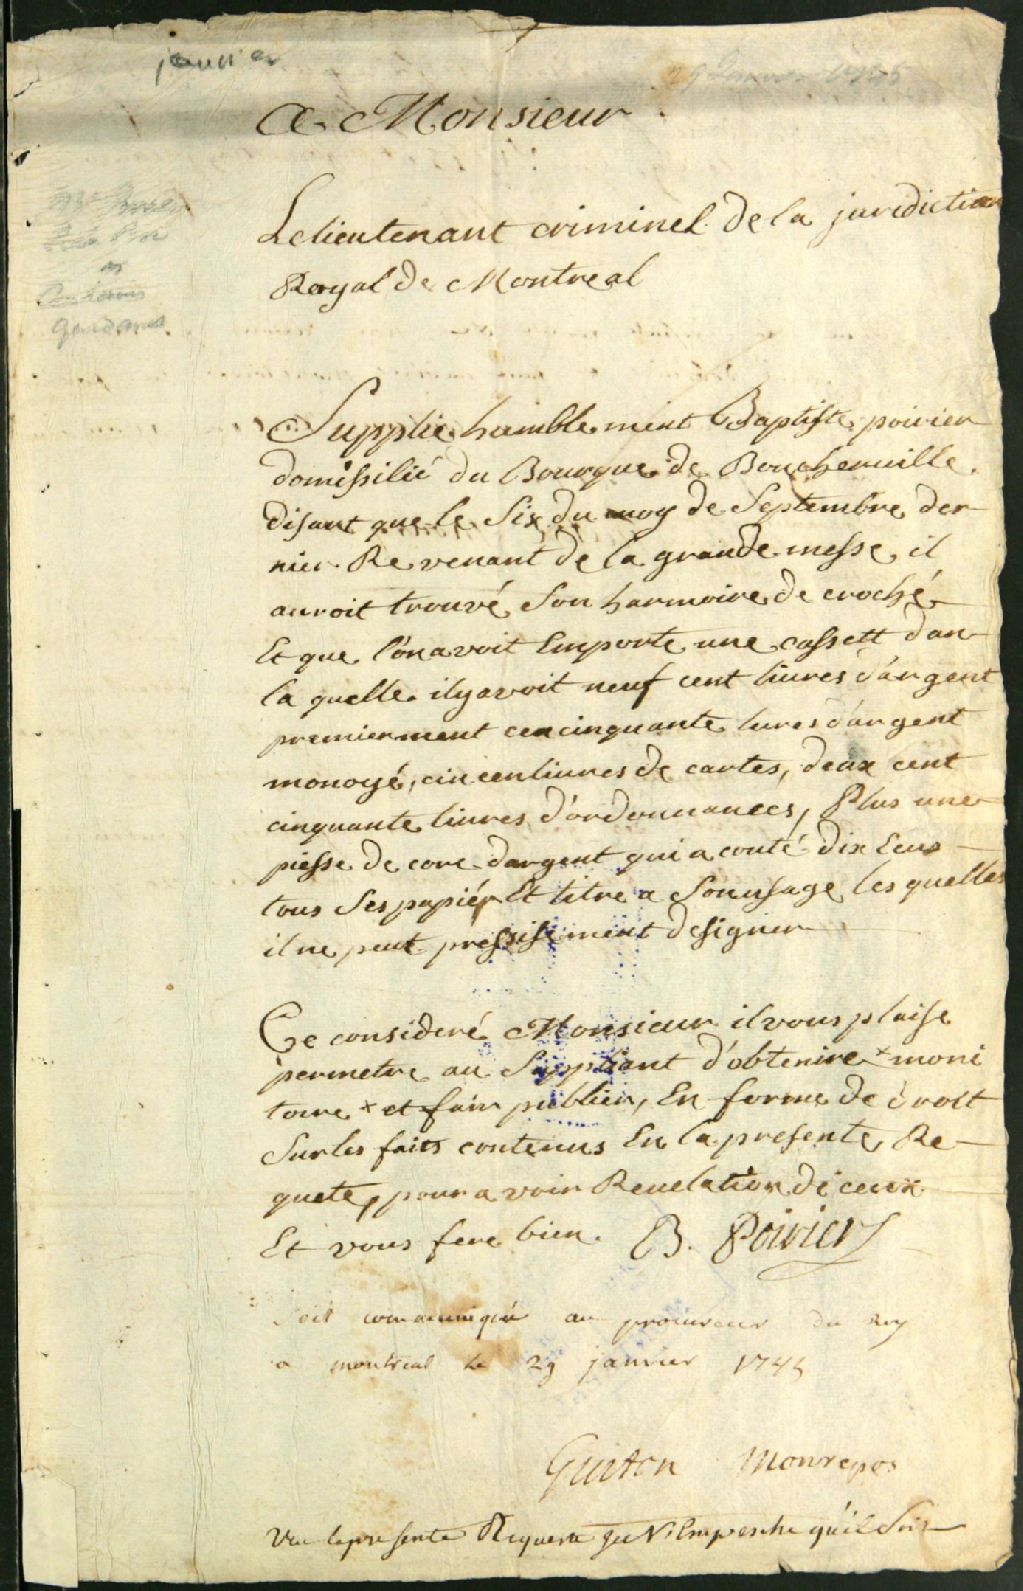 janvier
29 Janvier 1745
A Monsieur
Le lieutenant criminel de la juridiction
Royal de Montreal
Supplie humblement Baptiste poirier
domissilié du Bourgue de Boucherville
disant que le Six du moy de Septembre der
nier Revenant de la grande messe il
auroit trouvé Son harmoire de croché
Et que l'on avoit Emporte une cassett dan
la quelle il y avoit neuf cent livres d'argent
premierment cen cinquante livres d'argent
monoyé, cin cen livres de cartes, deux cent
cinquante livres d'ordonnances, Plus une
piesse de core dargent qui a couté dix Ecus
tous Ses papiér Et titre a Son usage les quelles
il ne peut pressisement designer
Ce consideré Monsieur il vous plaise
permetre au Suppliant d'obtenire x moni
toire x et fair publier, En forme de droit
Sur les faits contenus En la presente Re
quete, pour avoir Revelation di ceux
Et vous fere bien. B. Poirier
Soit communiqué au procureur du Roy
a montreal le 29 janvier 1745
Guiton Monrepos
Vu la presente Requeste Je N'Empesche qu'il Soit